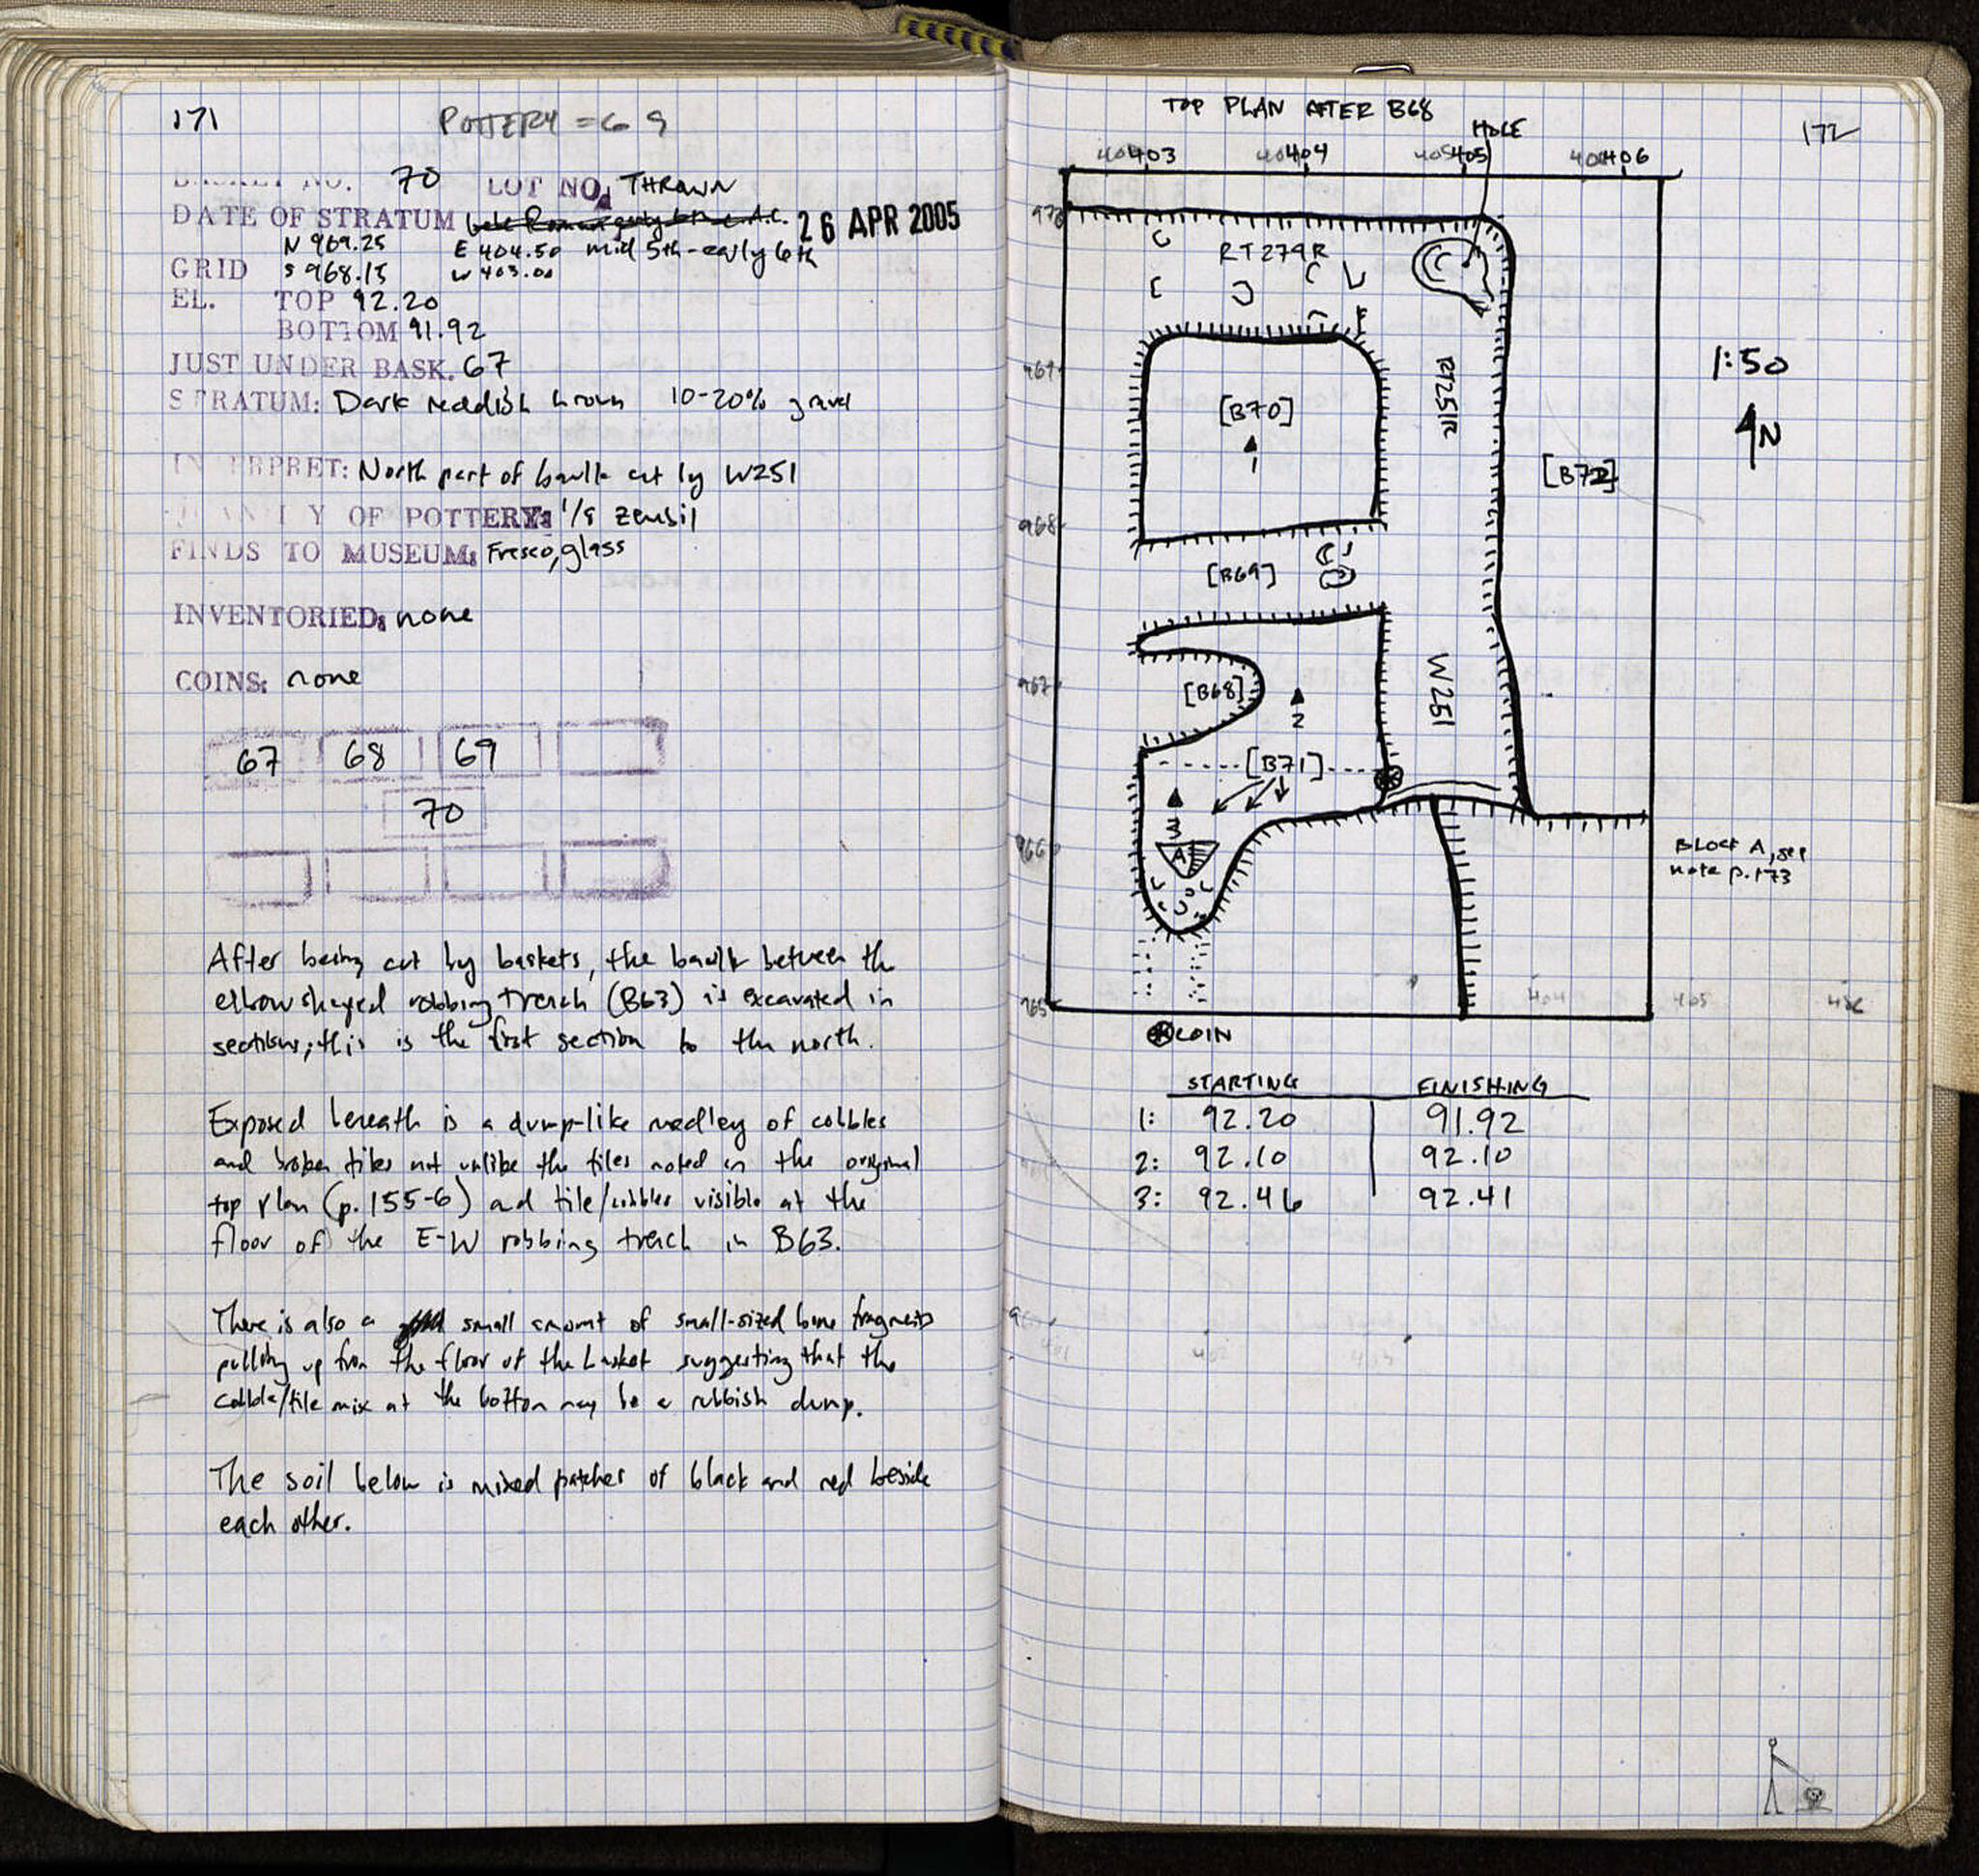 171
POTTERY = 69
BASKET NO. 70 LOT NO. THROWN
DATE OF STRATUM Late Roman early 6th c. A.C. 26 APR 2005
N 969.25 E 404.50 mid 5th-early 6th
GRID S 968.15 W 403.00
EL. TOP 92.20
BOTTOM 91.92
JUST UNDER BASK. 67
STRATUM: Dark reddish brown 10-20% gravel
INTERPRET: North part of baulk cut by W251
QUANTITY OF POTTERY: 1/8 zembil
FINDS TO MUSEUM: Fresco, glass
INVENTORIED: none
COINS: none
67 68 69
70
After being cut by baskets, the baulk between the
elbow shaped robbing trench (B63) is excavated in
sections; this is the first section to the north.
Exposed beneath is a dump-like medley of cobbles
and broken tiles not unlike the tiles noted in the original
top plan (p. 155-6) and tile/cobbles visible at the
floor of the E-W robbing trench in B63.
There is also a small amount of small-sized bone fragments
pulling up from the floor of the basket suggesting that the
cobble/tile mix at the bottom may be a rubbish dump.
The soil below is mixed patches of black and red beside
each other.
TOP PLAN AFTER B68
172
HOLE
403 404 405 406
970
RT274R
969
RT251R
1:50
N
[B70]
1
[B72]
968
[B69]
967
[B68]
2
W251
[B71]
3
966
A
BLOCK A, see
note p. 173
965
404 405
COIN
STARTING FINISHING
1: 92.20 91.92
2: 92.10 92.10
3: 92.46 92.41
401 402 403